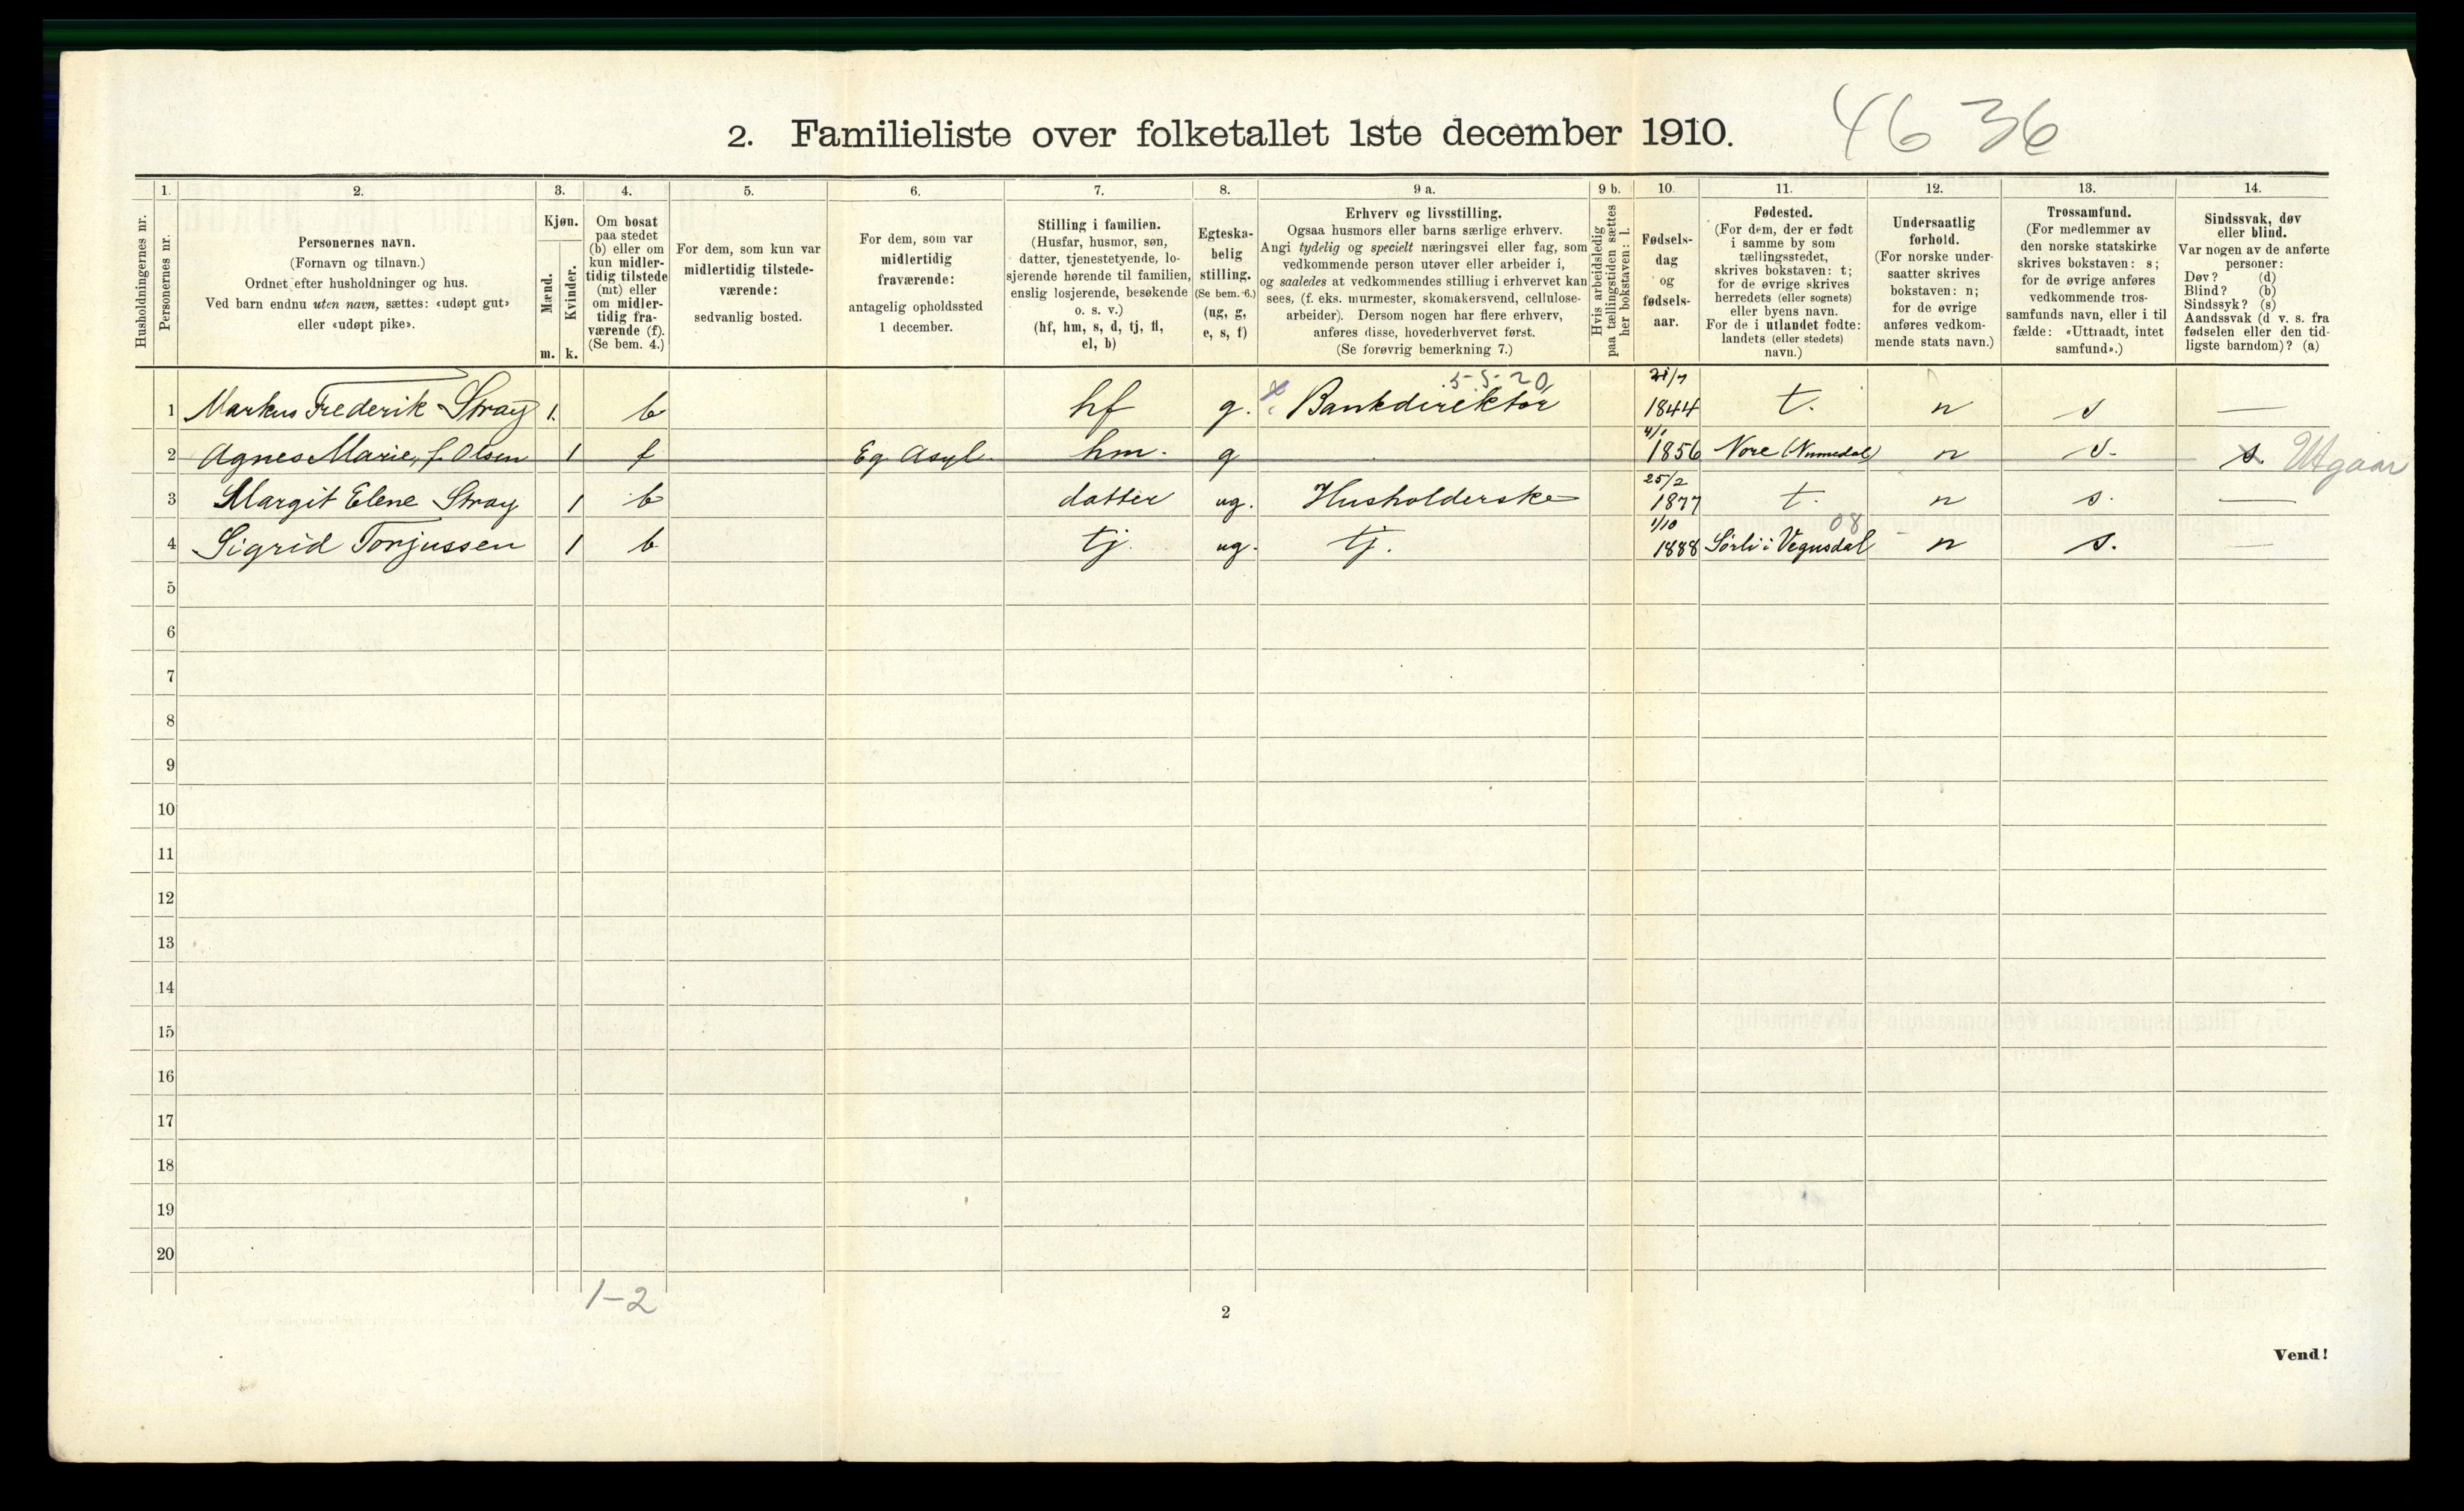 4636
2. Familieliste over folketallet 1ste december 1910.
Husholdningernes nr.
1.
Personernes nr.
2.
Personernes navn.
(Fornavn og tilnavn.)
Ordnet efter husholdninger og hus.
Ved barn endnu uten navn, sættes: «udøpt gut»
eller «udøpt pike».
3.
Kjøn.
Mænd.
Kvinder.
m. k.
4.
Om bosat
paa stedet
(b) eller om
kun midler-
tidig tilstede
(mt) eller
om midler-
tidig fra-
værende (f).
(Se bem. 4.)
5.
For dem, som kun var
midlertidig tilstede-
værende:
sedvanlig bosted.
6.
For dem, som var
midlertidig
fraværende:
antagelig opholdssted
1 december.
7.
Stilling i familien.
(Husfar, husmor, søn,
datter, tjenestetyende, lo-
sjerende hørende til familien,
enslig losjerende, besøkende
o. s. v.)
(hf, hm, s, d, tj, fl,
el, b)
8.
Egteska-
belig
stilling.
(Se bem. 6.)
(ug, g,
e, s, f)
9 a.
Erhverv og livsstilling.
Ogsaa husmors eller barns særlige erhverv.
Angi tydelig og specielt næringsvei eller fag, som
vedkommende person utøver eller arbeider i,
og saaledes at vedkommendes stilling i erhvervet kan
sees, (f. eks. murmester, skomakersvend, cellulose-
arbeider). Dersom nogen har flere erhverv,
anføres disse, hovederhvervet først.
(Se forøvrig bemerkning 7.)
9 b.
Hvis arbeidsledig
paa tællingstiden sættes
her bokstaven: l.
10.
Fødsels-
dag
og
fødsels-
aar.
11.
Fødested.
(For dem, der er født
i samme by som
tællingsstedet,
skrives bokstaven: t;
for de øvrige skrives
herredets (eller sognets)
eller byens navn.
For de i utlandet fødte:
landets (eller stedets)
navn.)
12.
Undersaatlig
forhold.
(For norske under-
saatter skrives
bokstaven: n;
for de øvrige
anføres vedkom-
mende stats navn.)
13.
Trossamfund.
(For medlemmer av
den norske statskirke
skrives bokstaven: s;
for de øvrige anføres
vedkommende tros-
samfunds navn, eller i til
fælde: «Uttraadt, intet
samfund».)
14.
Sindssvak, døv
eller blind.
Var nogen av de anførte
personer:
Døv? (d)
Blind? (b)
Sindssyk? (s)
Aandssvak (d v. s. fra
fødselen eller den tid-
ligste barndom)? (a)
5-5-20
1 Markus Frederik Stray 1. b hf g. Bankdirektør 1844 t. n s —
2 Agnes Marie, f. Olsen 1 f Eg Asyl. hm. g 4/1 1856 Nore (Numedal) n s. s. Utgaar
3 Margit Elene Stray 1 b datter ug. Husholderske 25/2 1877 t. n s. —
08
4 Sigrid Torjussen 1 b tj. ug. tj. 1/10 1888 Sørli i Vegusdal n s. —
5
6
7
8
9
10
11
12
13
14
15
16
17
18
19
20
1-2
2
Vend!